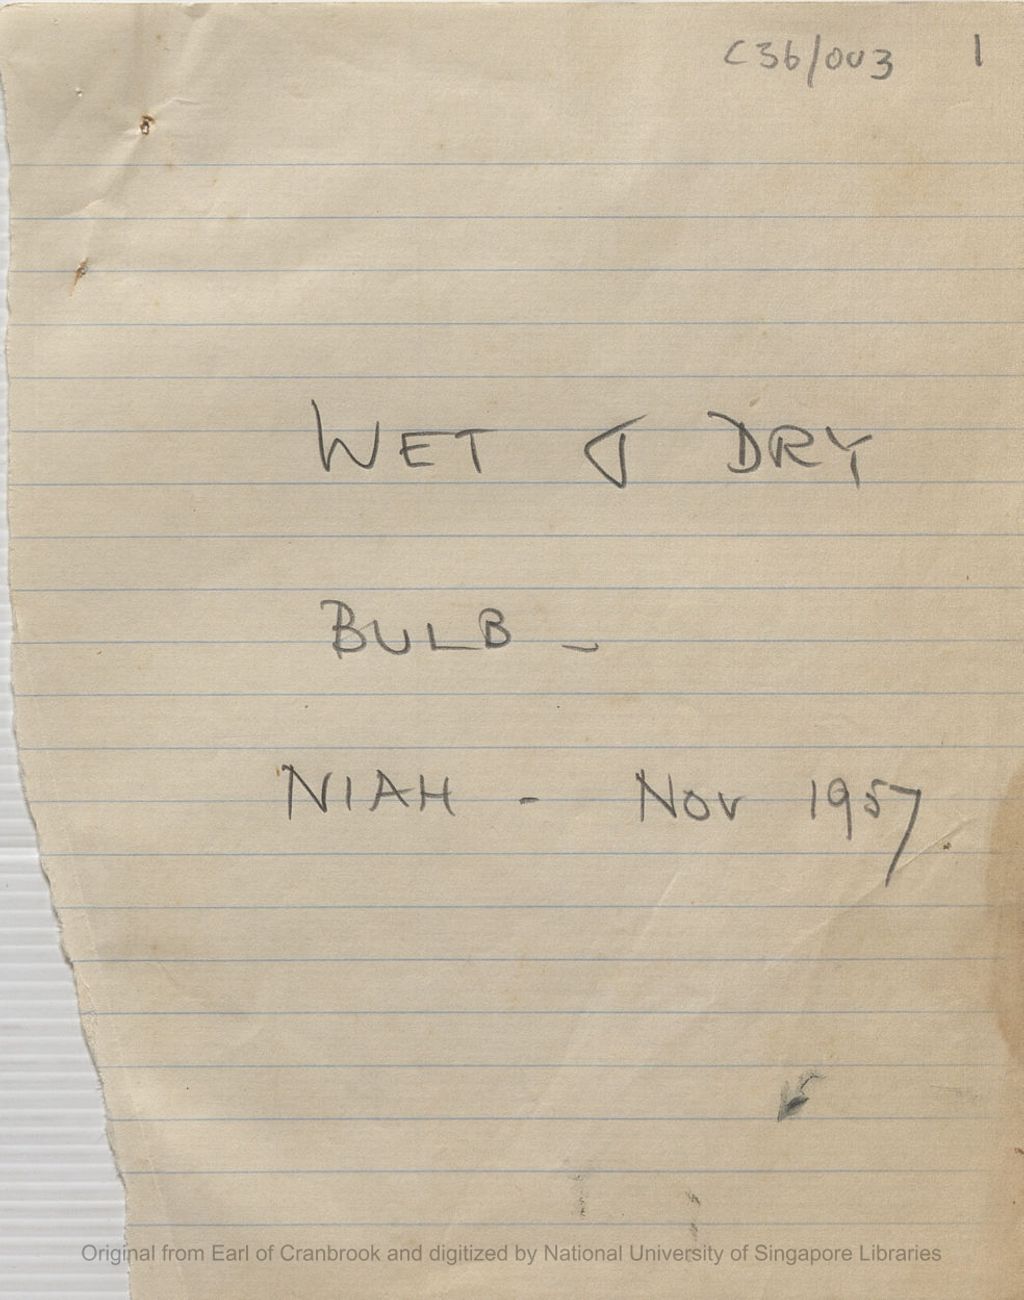 C36/003 1
WET & DRY
BULB -
NIAH - Nov 1957.
Original from Earl of Cranbrook and digitized by National University of Singapore Libraries